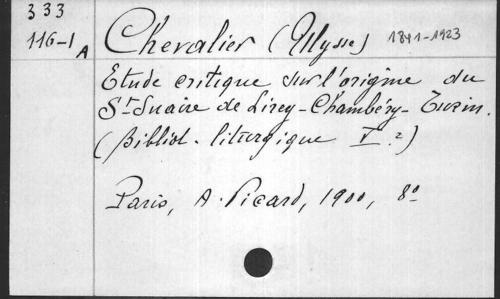 333
116-1 A
Chevalier (Ulysse) 1841-1923
Etude critique sur l'origine du
St-Suaire de Lirey-Chambéry-Turin.
(Bibliot. liturgique V. 2)
Paris, A. Picard, 1900, 8°